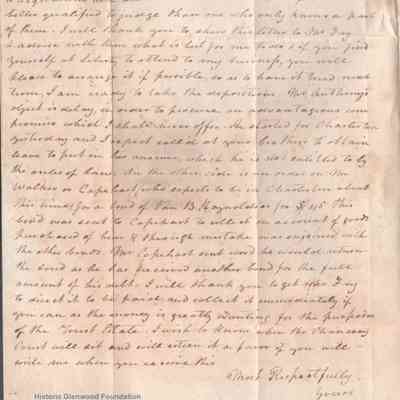 better qualified to judge than one who only knows a part
of them. I will thank you to show this letter to Mr Fay
& advise with him what is best for me to do & if you find
yourself at liberty to attend to my business, you will
please to arrange it if possible, so as to have it tried next
term, I am ready to take the depositions. Mr
object is delay, in order to procure an advantageous com
promise which I shall never offer. He started for Charleston
yesterday and I expect called at your brothers to obtain
leave to put in his answer, which he is not entitled to by
the rules of Court. On the other side is an order on Mr
Walker or Capehart, who expects to be in Charleston about
this time, for a bond of Wm B. Reynolds for $ 45 This
bond was sent to Capehart to collect on account of goods
purchased of him & through mistake was enjoined with
the other bonds. Mr Capehart sent word he would return
the bond as he has received another bond for the full
amount of his debt. I will thank you to get Mr Fay
to direct it to be paid and collect it immediately if
you can as the money is greatly wanting for the purposes
of the Trust Estate. I wish to know when the Chancery
Court will sit and will esteem it a favor if you will
write me when you receive this
Most Respectfully
Yours
Historic Glenwood Foundation